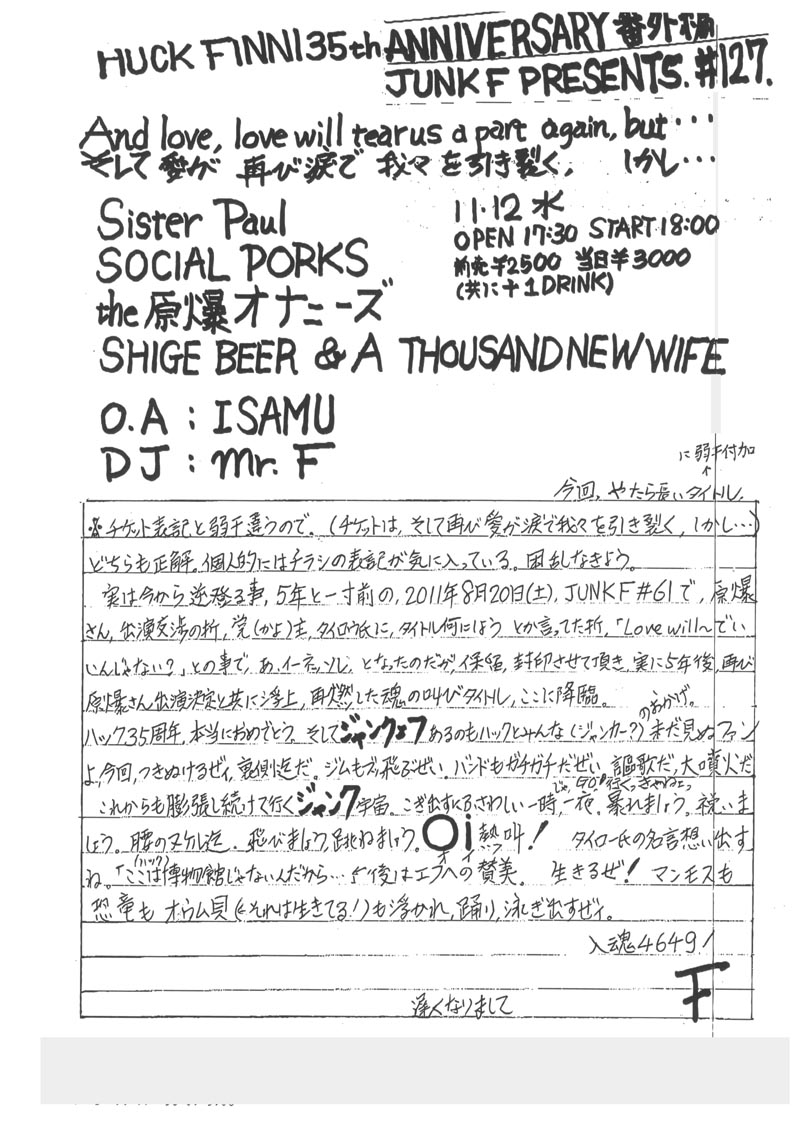 HUCK FINN 35th ANNIVERSARY 番外編
JUNK F PRESENTS. #127.
And love, love will tear us a part again, but・・・
そして愛が 再び涙で 我々を引き裂く, しかし・・・
Sister Paul
SOCIAL PORKS
the 原爆オナニーズ
SHIGE BEER & A THOUSAND NEW WIFE
11.12 水
OPEN 17:30 START 18:00
前売¥2500 当日¥3000
(共に+1DRINK)
O.A : ISAMU
DJ : Mr. F
に弱干付加
↑
今回, やたら長いタイトル,
※チケット表記と弱干違うので。(チケットは, そして再び愛が涙で我々を引き裂く, しかし…)
どちらも正解。個人的にはチラシの表記が気に入っている。困乱なきよう。
実は今から逆登る事, 5年と一寸前の, 2011年8月20日(土), JUNK F #61で, 原爆
さん, 出演交渉の折, 党(かよ)主, タイロウ氏に, タイトル何にしよう とか言ってた折, 「Love will〜でい
いんじゃない?」との事で, あ, イーネッソレ, となったのだが, 保留, 封印させて頂き, 実に5年後, 再び
原爆さん出演決定と共に浮上, 再燃した魂の叫びタイトル, ここに降臨。
ハック35周年, 本当におめでとう。そしてジャンクェフあるのもハックとみんな(ジャンカー?)のおかげ。未だ見ぬファン
よ, 今回, つきぬけるぜィ, 裏側迄だ。ジムもブッ飛ぶぜい。バンドもガチガチだぜい 謳歌だ, 大噴火だ
これからも膨張し続けて行くジャンク宇宙。こぎ出すにふさわしい一時, 一夜。暴れましょう。祝いま
しょう。腰のヌケル迄。飛びましょう, 跳ねましょう。Oi(オイ)熱叫! タイロー氏の名言想い出す
ね。「ここ(ハック)は博物館じゃないんだから… 後はエフへの賛美。 生きるぜ! マンモスも
恐竜も オウム貝(←それは生きてる!)も浮かれ, 踊り, 泳ぎ出すぜィ。
入魂4649!
F
遅くなりまして